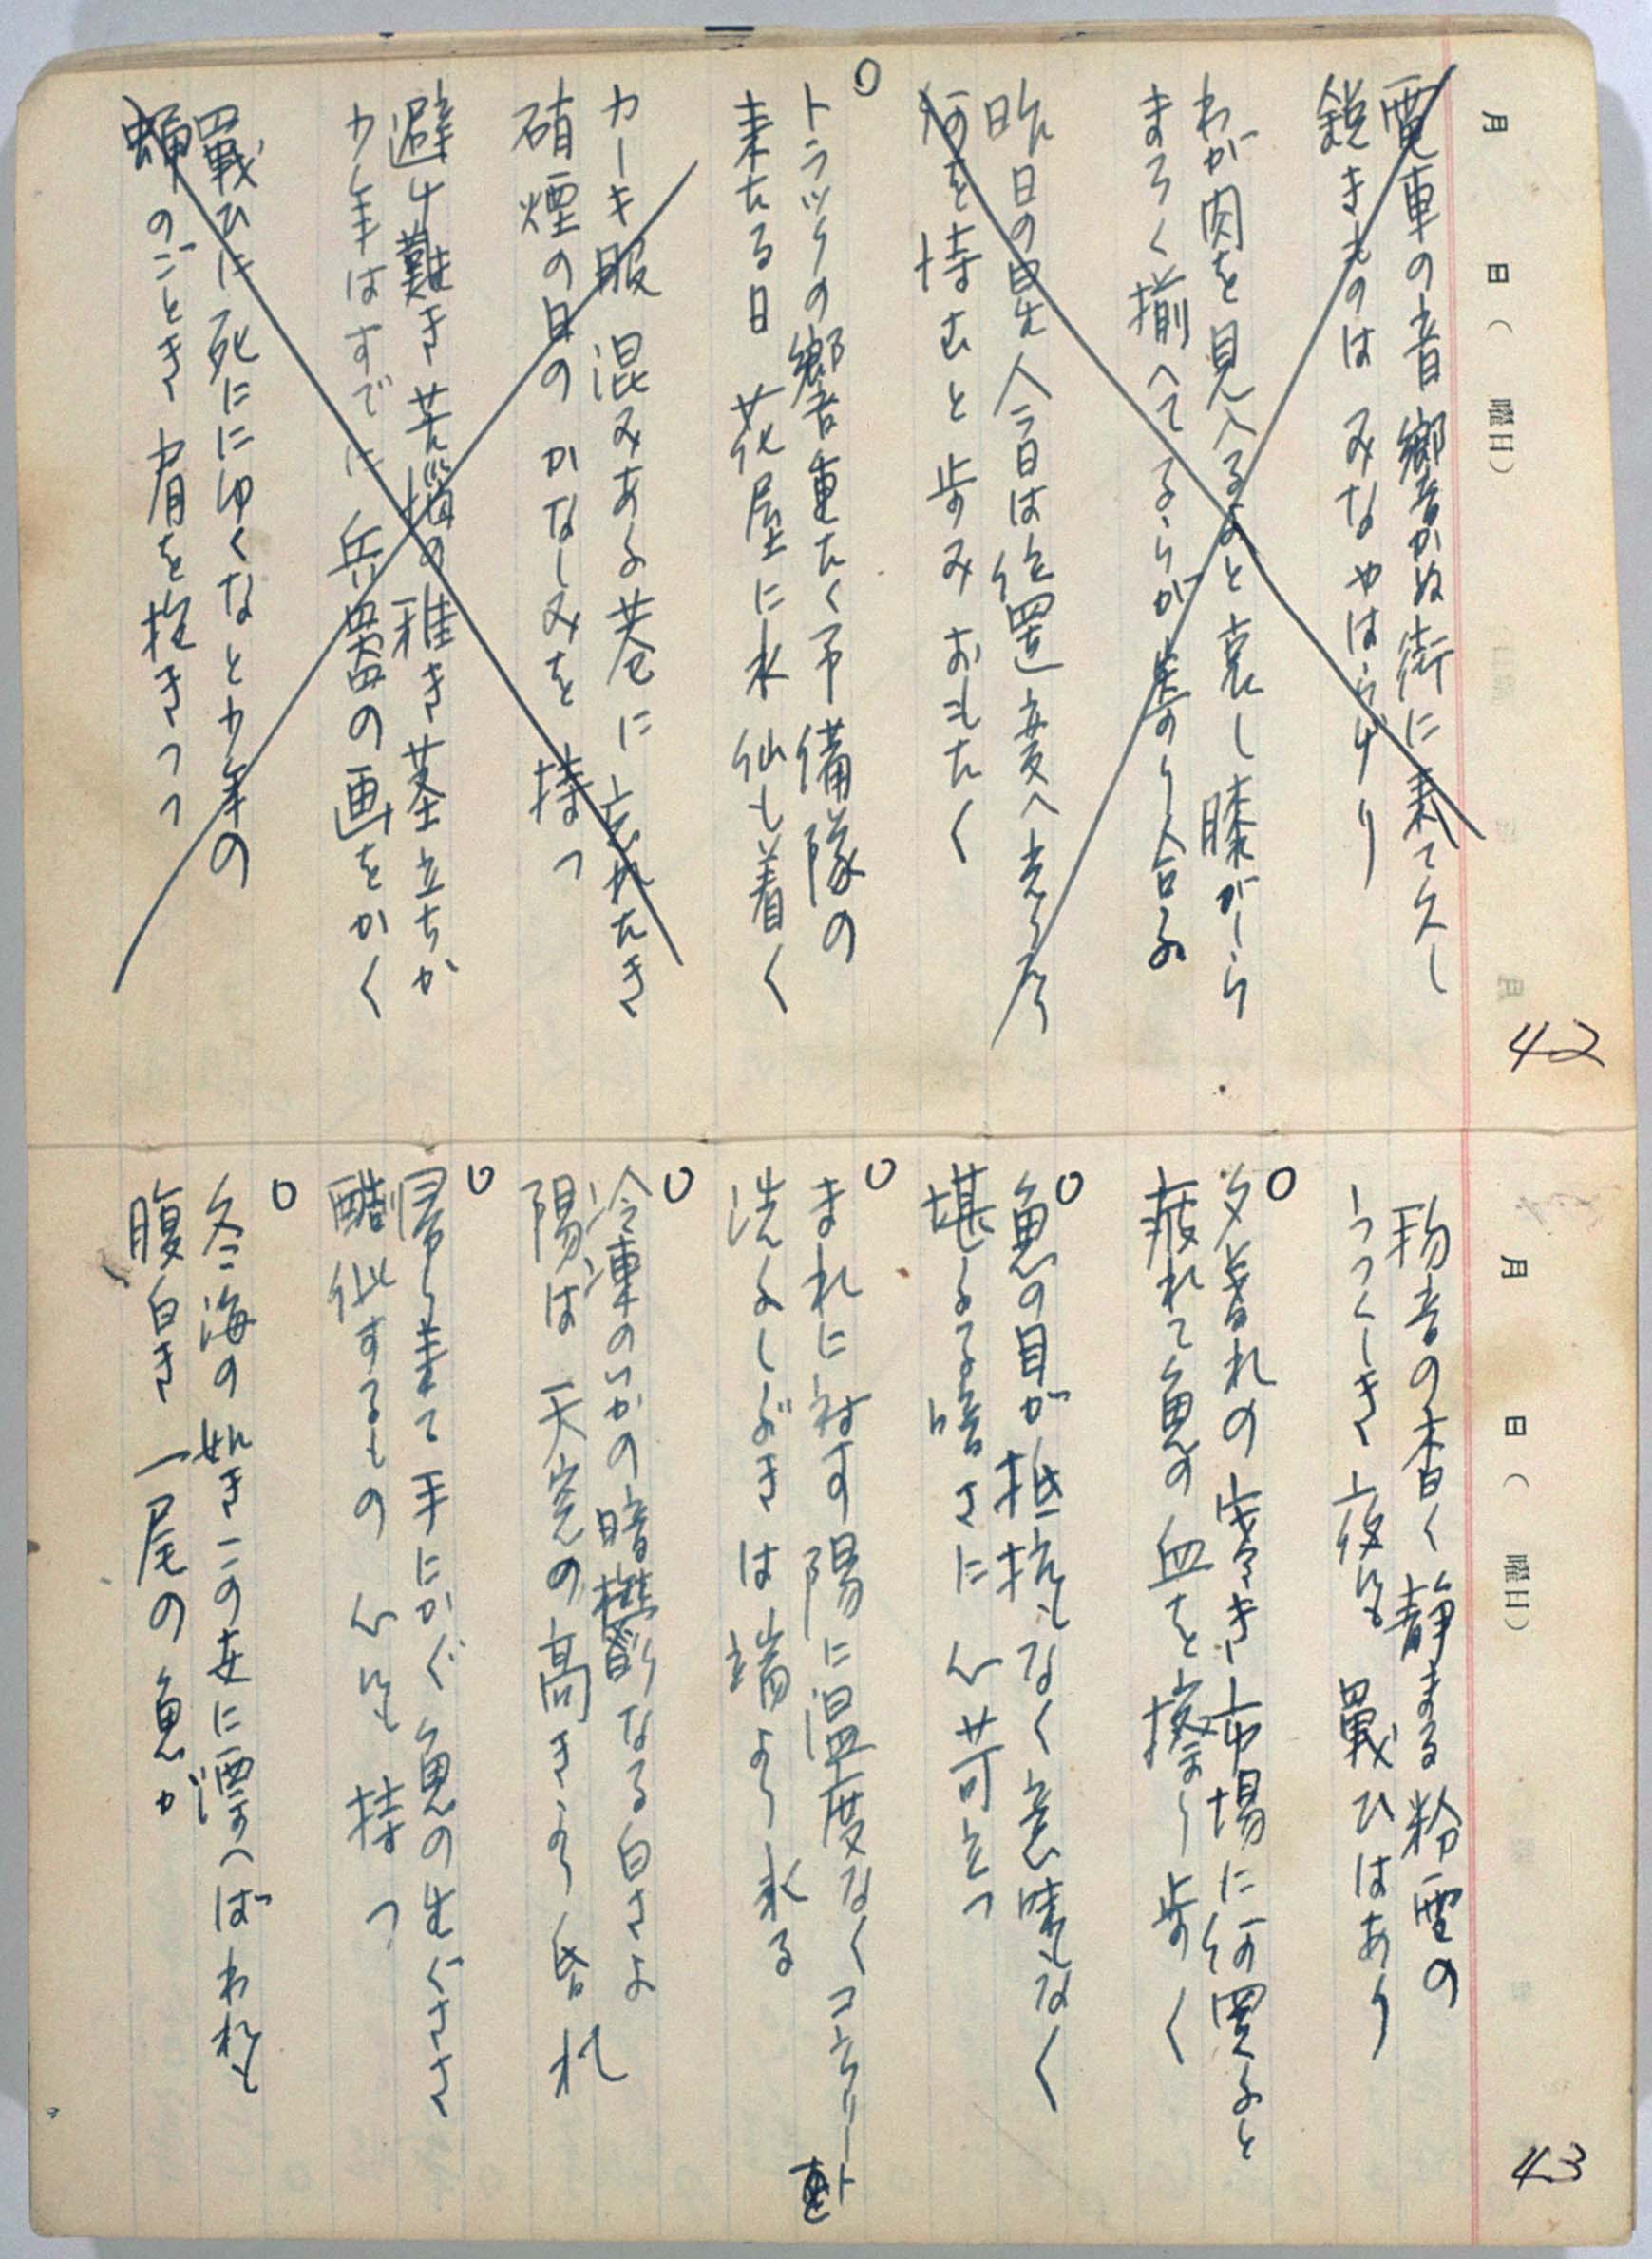 月 日( 曜日)
42
電車の音響かぬ街に来て久し
鋭きものは みなやはらげり
わが肉を見入るよと哀し膝がしら
まろく揃へて
昨日の星 今日は位置変へ光る
何を待むと歩みおもたく
トラックの響重たく予備隊の
来たる日 花屋に水仙も着く
カーキ服 混みあふ巷に 忘れたき
硝煙の日の かなしみを 持つ
避け難き 苦悩の稚き茎立ちか
少年はすでに 兵器の画をかく
戦ひに死ににゆくなと少年の
蝋のごとき 肩を抱きつつ
月 日( 曜日)
43
物音の杳く静まる粉雪の
うつくしき夜にも 戦ひはあり
夕昏れの寒き市場に何買ふと
疲れて魚の血を擦り歩く
魚の目が抵抗もなく意味もなく
堪えてる暗さに 心苛立つ
まれに射す陽に温度なくコンクリート
洗ふしぶきは端より氷る
冷凍のいかの暗鬱なる白さよ
陽は 天窓の高きより昏れ
帰り来て手にかぐ魚の生ぐささ
酷似するもの 心にも持つ
冬海の如きこの世に漂へばわれも
腹白き 一尾の魚か